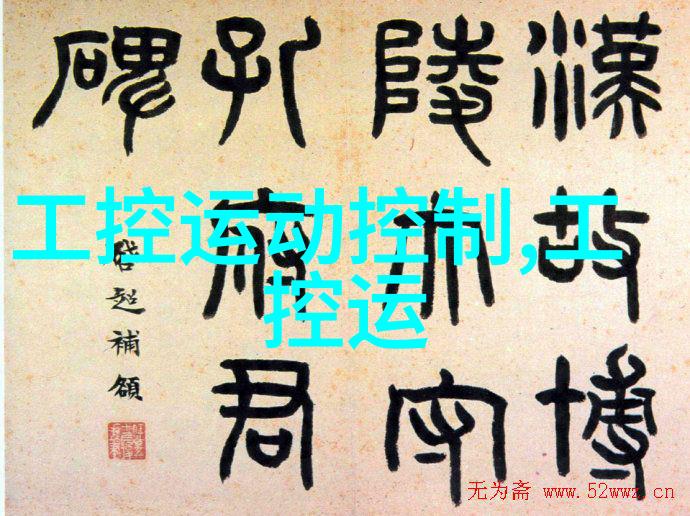 漢故博
陵太守
孔府君
碑
啓超補額
工控运动控制,工
控运
无为斋 www.52wwz.cn